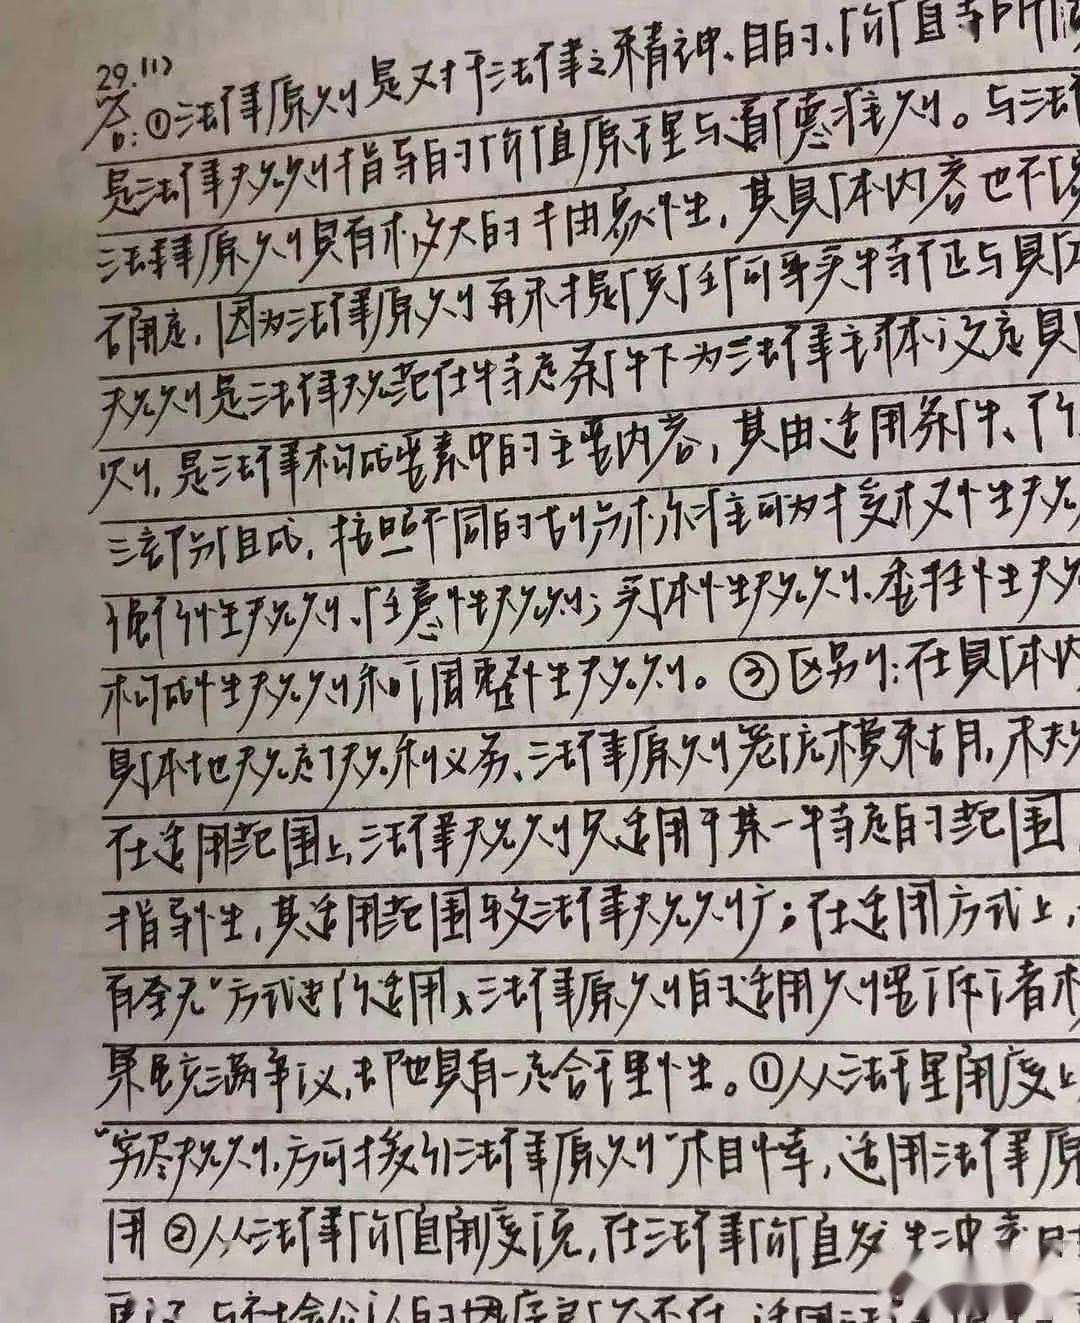 29.(1)
答:①法律原则是对于法律之精神、目的、价值等所
是法律规则指导的价值原理与道德准则。与法
法律原则具有较大的中立性,其具体内容也不
确定,因为法律原则再未提供任何事实特征与具
规则是法律规范在特定条件下为法律主体设定具
则,是法律构成要素中的主要内容,其由适用条件、行
三部分组成,按照不同的划分标准可为授权性规
强行性规则、任意性规则;实体性规则、委任性规
构成性规则和调整性规则。③区别:在具体内
具体地规定了权利义务、法律原则笼统模糊,未
在适用范围上,法律规则只适用于某一特定的范围
指导性,其适用范围较法律规则广;在适用方式上,
有全无"方式进行适用,法律原则的适用则要
果虽充满争议,却也具有一定合理性。①从法理角度
"穷尽规则,方可援引法律原则"相悖,适用法律原
用②从法律价值角度说,在法律价值发生冲突时
与社会公认的